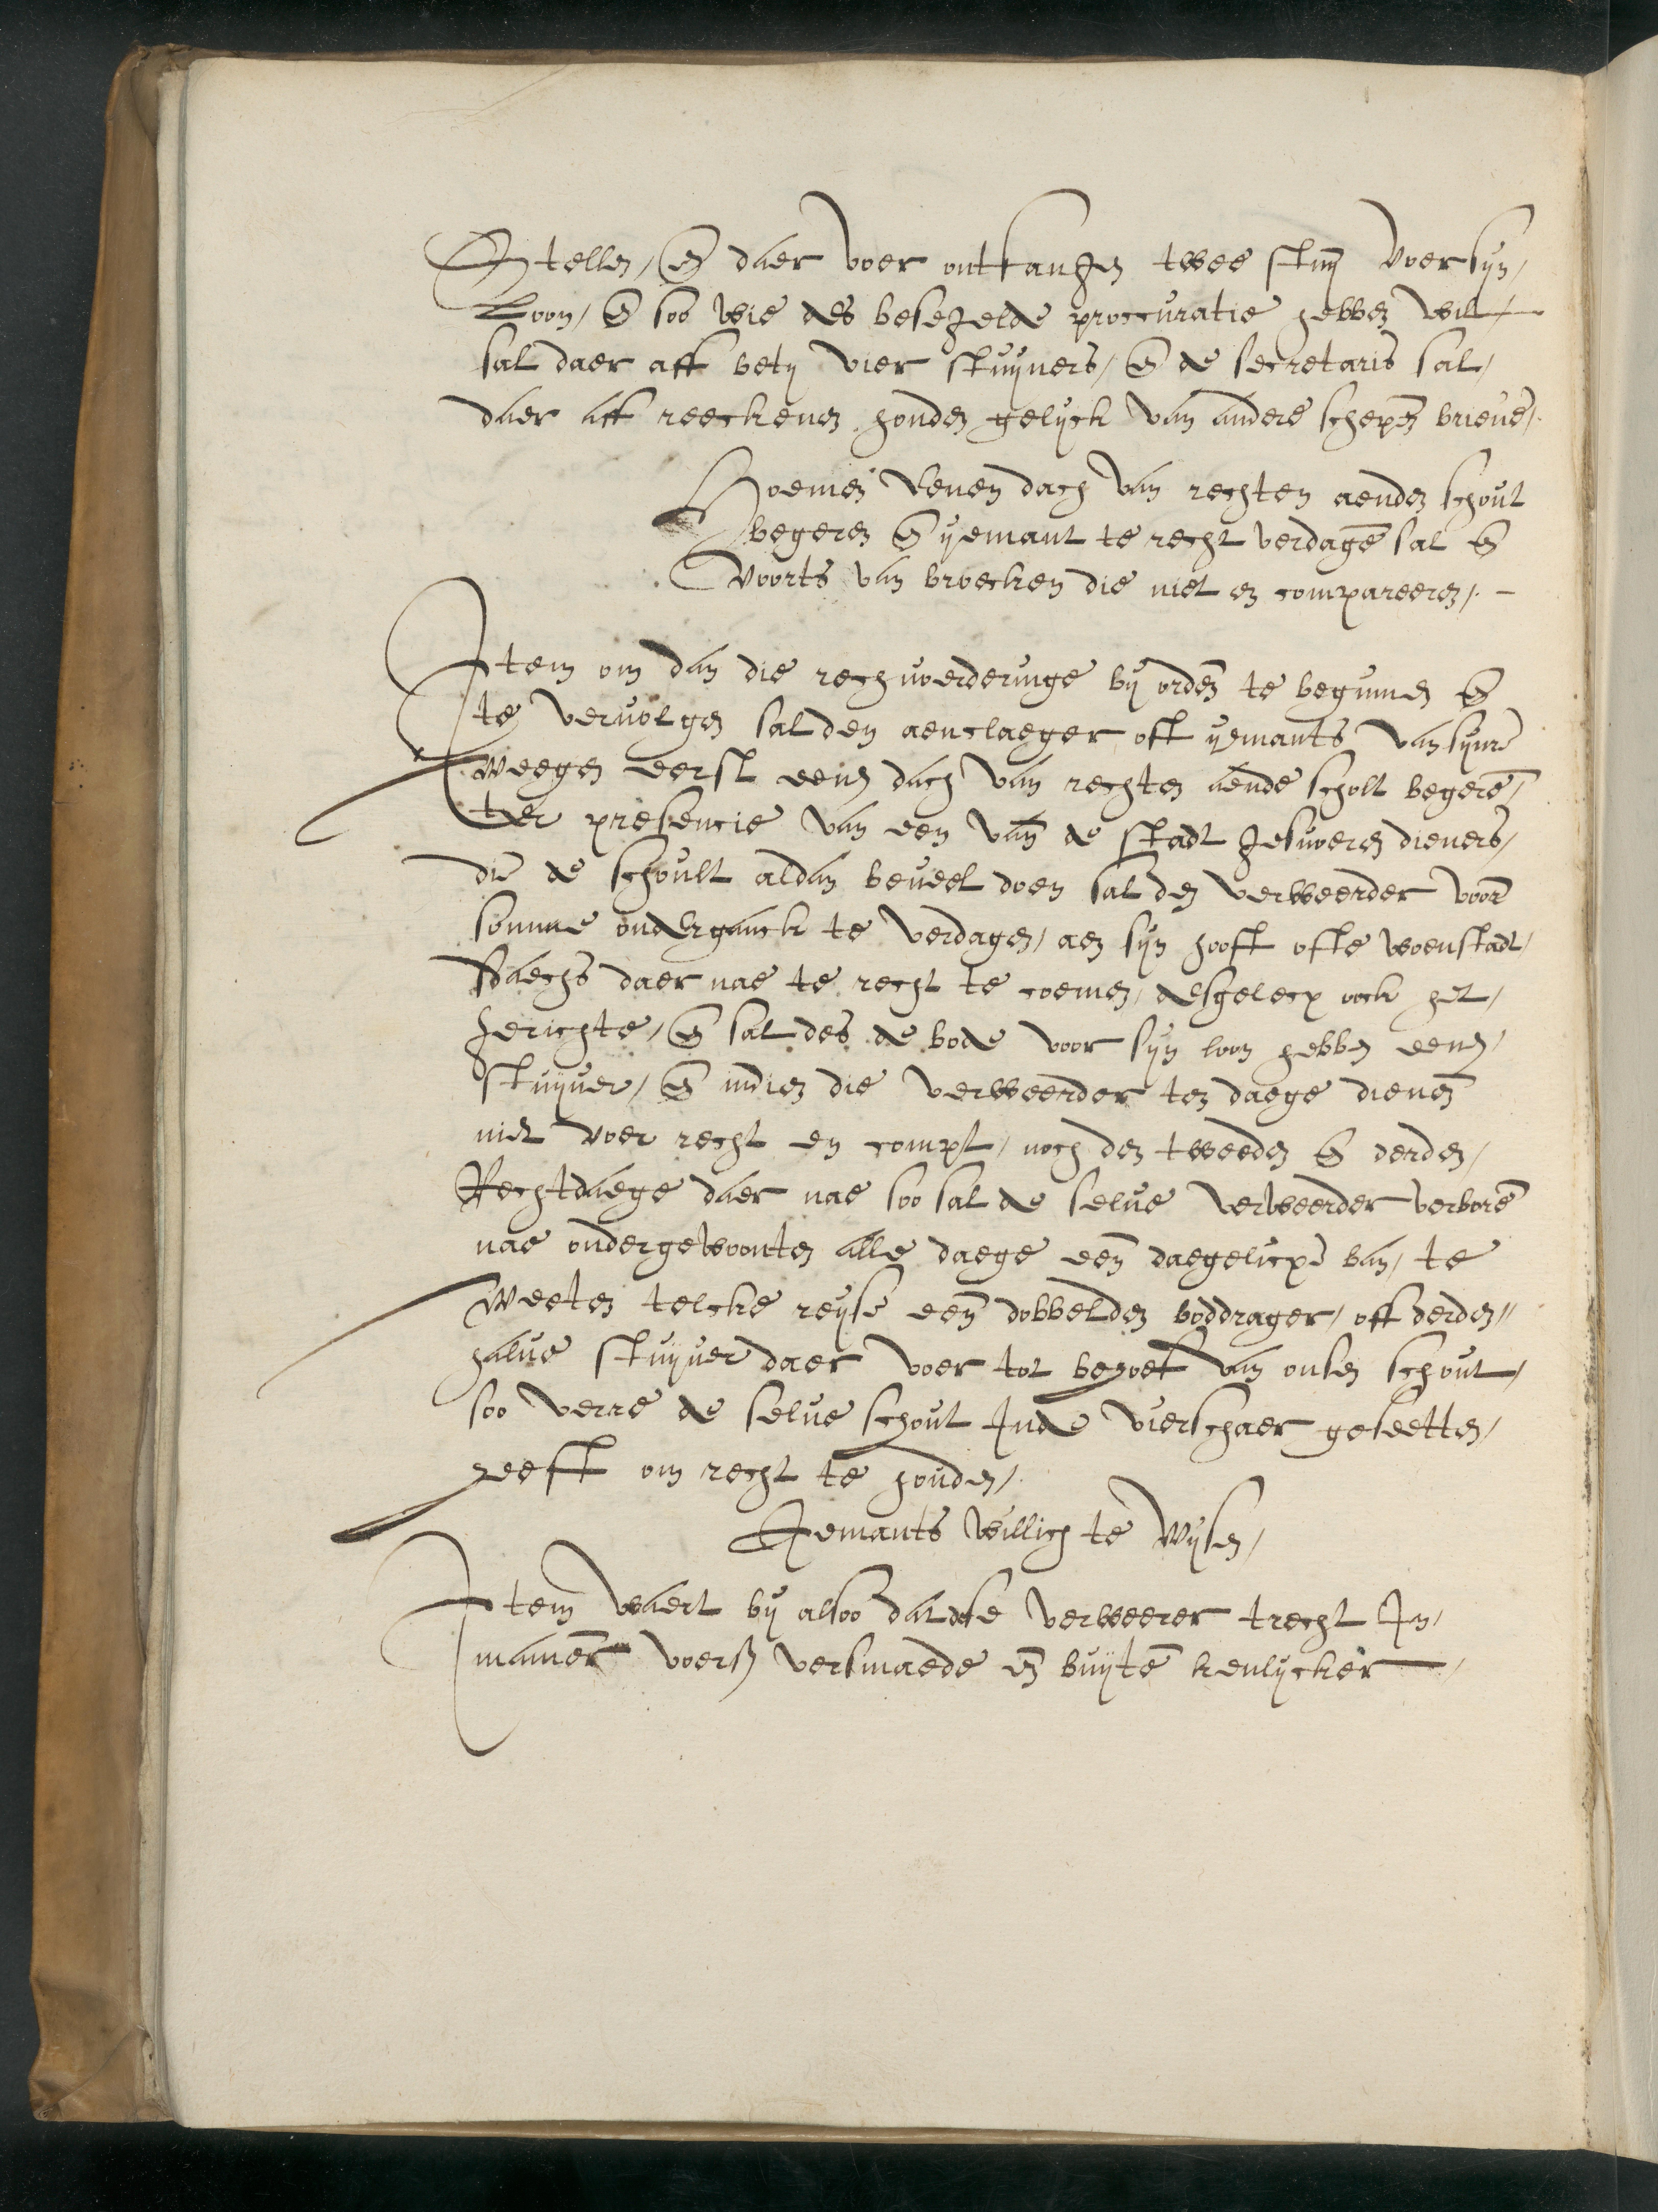 Stellen, en̄ daer voer ontfangen twee stuv̄ voer sijn,
Loon, en̄ soo wie des besegelde procuratie hebben wilt,
sal daer aff bet̄ vier stuijvers, en̄ de secretaris sal,
daer aff reeckenen, houden gelijck van andere schepen̄ brieve,.
Hoemen eenen dach van rechten aenden schout
begeren en̄ ijemant te recht verdagē sal en̄
voorts van broecken die niet en compareeren,. -
Item om dan die rechvoerderinge bij orden̄ te beginnen en̄
te vervolgen sal den aenclaeger oft ijemants van sijnre
weegen eerst eenen dach van rechten aende scholt begerē,
ter presencie van een van̄ de stadt gesworen dieners,
die de schoult aldan beveel doen sal den verweerder voor
sonne onderganck te verdagen, aen sijn hooft ofte woenstadt,
sdaechs daer nae te recht te coemen, desgelecx oock het,
gerichte, en̄ sal des de bode voor sijn loon hebben eenen,
stuijver, en̄ indien die verweerder ten daege dienen̄
niet voer recht en compt, noch den tweeden en̄ derden,
Rechtdaege daer nae soo sal de selve verweerder verborē
nae ondergewoonten alle daege een̄ daegelicxē ban, te
weeten telcke reijse een̄ dobbelden boddrager, oft derden"
halve stuijver daer voer tot behoef van onsen schout,
soo verre de selve schout Inde vierschaer geseetten,
heeft om recht te houden,.
Ijemants willich te Wijsen,
Item waert bij alsoo dat dese verweerer trecht In,
manier voerß versmaede en̄ buijtē kenlijcker,